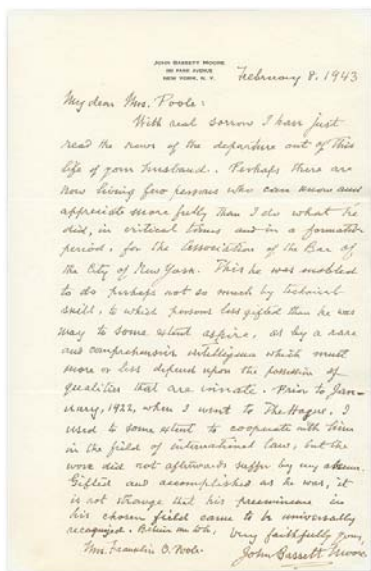 JOHN BASSETT MOORE
PARK AVENUE
NEW YORK, N. Y.
February 8, 1943
My dear Mrs. Poole:
With real sorrow I have just
read the news of the departure out of this
life of your husband. Perhaps there are
now living few persons who can know and
appreciate more fully than I do what he
did, in critical times and in a formative
period, for the Association of the Bar of
the City of New York. This he was enabled
to do perhaps not so much by technical
skill, to which persons less gifted than he was
may to some extent aspire, as by a rare
and comprehensive intelligence which must
more or less depend upon the possession of
qualities that are innate. Prior to Jan-
uary, 1922, when I went to The Hague, I
used to some extent to cooperate with him
in the field of international law, but the
work did not afterwards suffer by my absence.
Gifted and accomplished as he was, it
is not strange that his preeminence in
his chosen field came to be universally
recognized. Believe me to be,
Very faithfully yours,
Mrs. Franklin O. Poole.
John Bassett Moore